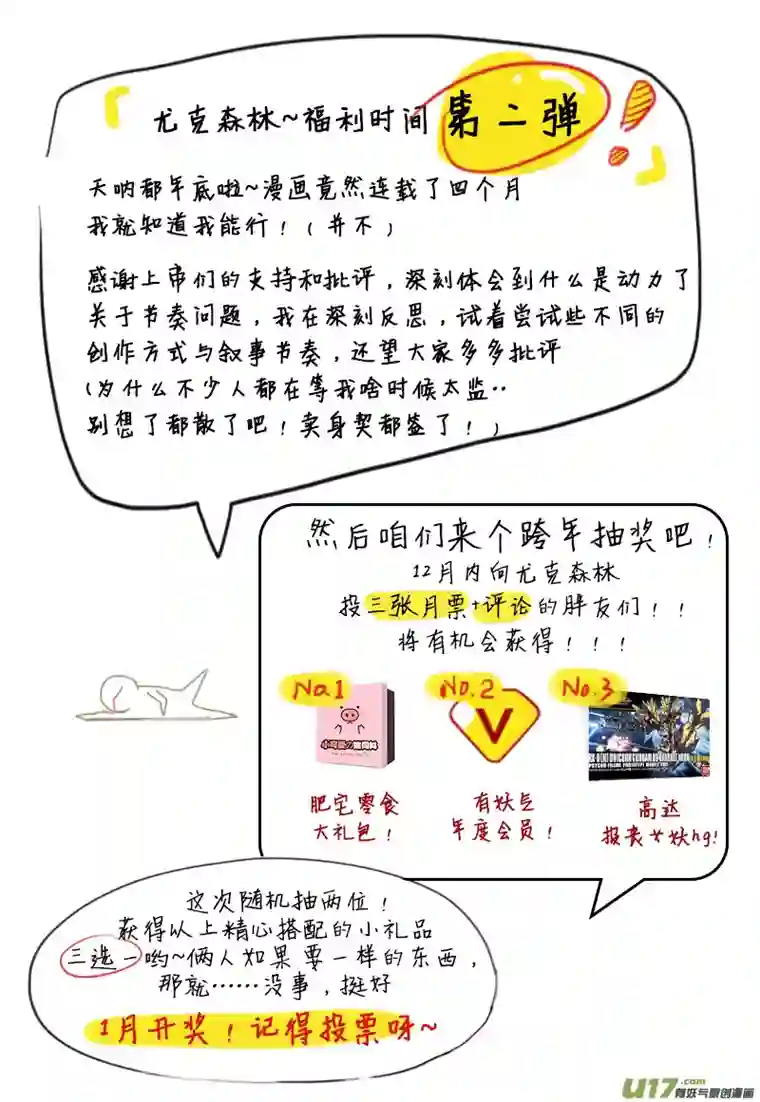 「尤克森林~福利时间 第二弹!」
天呐都年底啦~漫画竟然连载了四个月
我就知道我能行!(并不)
感谢上帝们的支持和批评,深刻体会到什么是动力了
关于节奏问题,我在深刻反思,试着尝试些不同的
创作方式与叙事节奏,还望大家多多批评
(为什么不少人都在等我啥时候太监··
别想了都散了吧!卖身契都签了!)
然后咱们来个跨年抽奖吧!
12月内向尤克森林
投三张月票+评论的胖友们!!
将有机会获得!!!
No.1
No.2
No.3
V
肥宅零食
大礼包!
有妖气
年度会员!
高达
报丧女妖hg!
这次随机抽两位!
获得以上精心搭配的小礼品
三选一哟~俩人如果要一样的东西,
那就……没事,挺好
1月开奖!记得投票呀~
U17.com
有妖气原创漫画